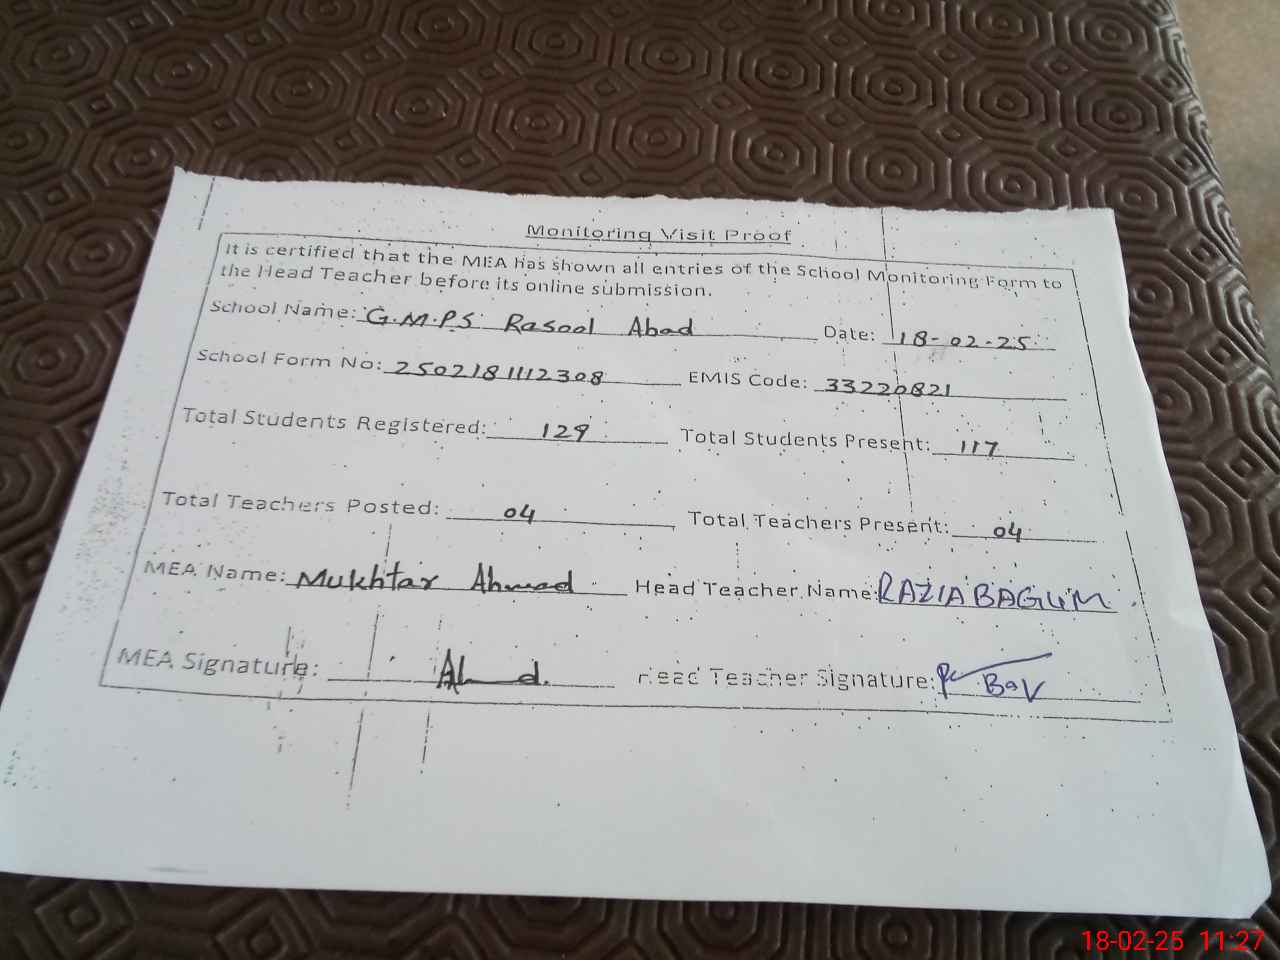 Monitoring Visit Proof
It is certified that the MEA has shown all entries of the School Monitoring Form to
the Head Teacher before its online submission.
School Name: G.M.P.S Rasool Abad Date: 18-02-25
School Form No: 2502181112308 EMIS Code: 33220821
Total Students Registered: 129 Total Students Present: 117
Total Teachers Posted: 04 Total Teachers Present: 04
MEA Name: Mukhtar Ahmad Head Teacher Name: RAZIA BAGUM
MEA Signature: Head Teacher Signature:
18-02-25 11:27